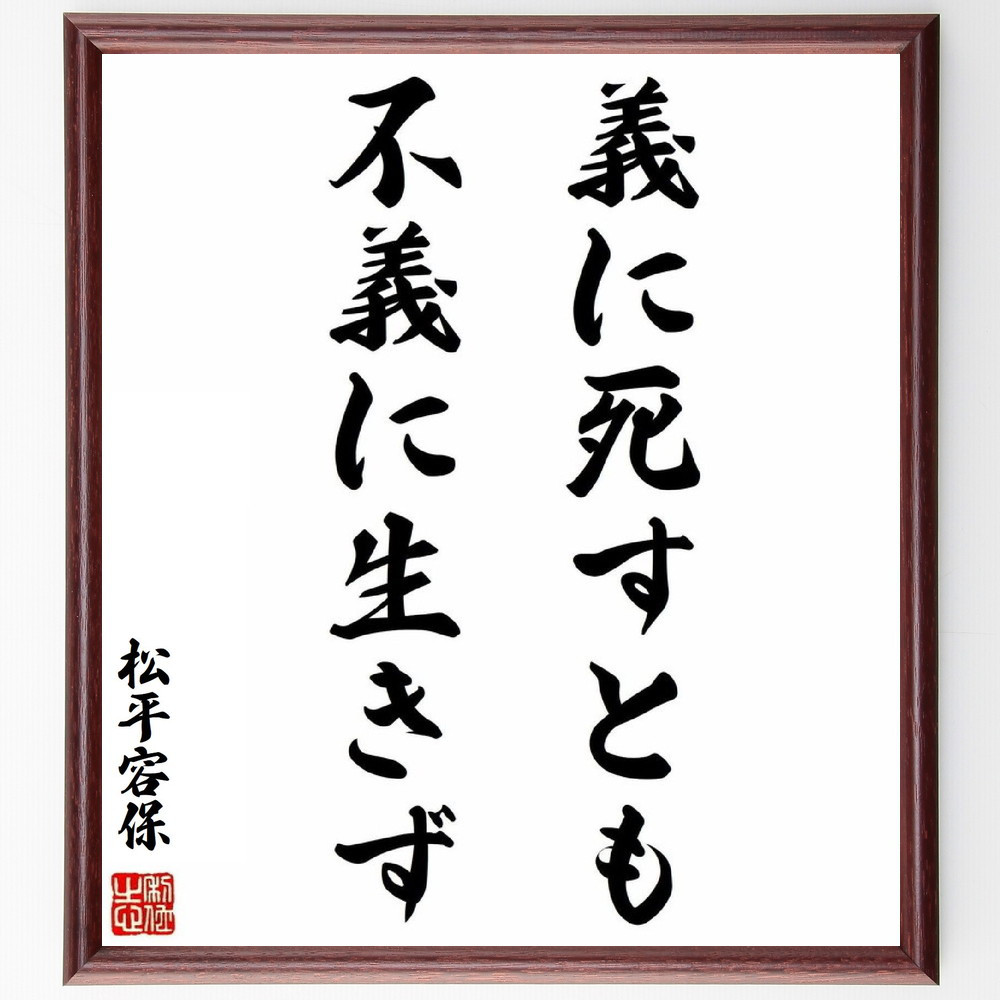 義に死すとも
不義に生きず
松平容保